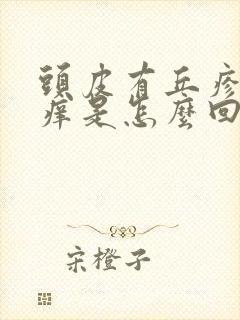 頭皮有丘疹
癢是怎麼回
宋橙子